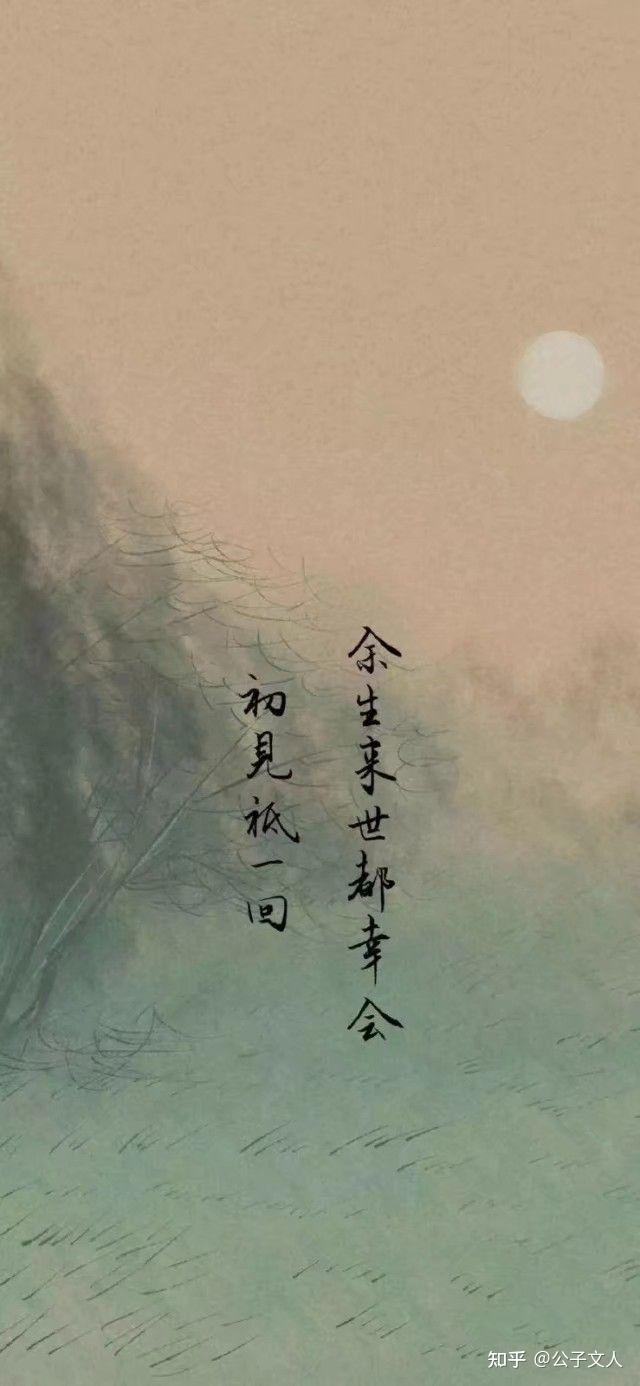 余生来世都幸会
初見祇一回
知乎 @公子文人